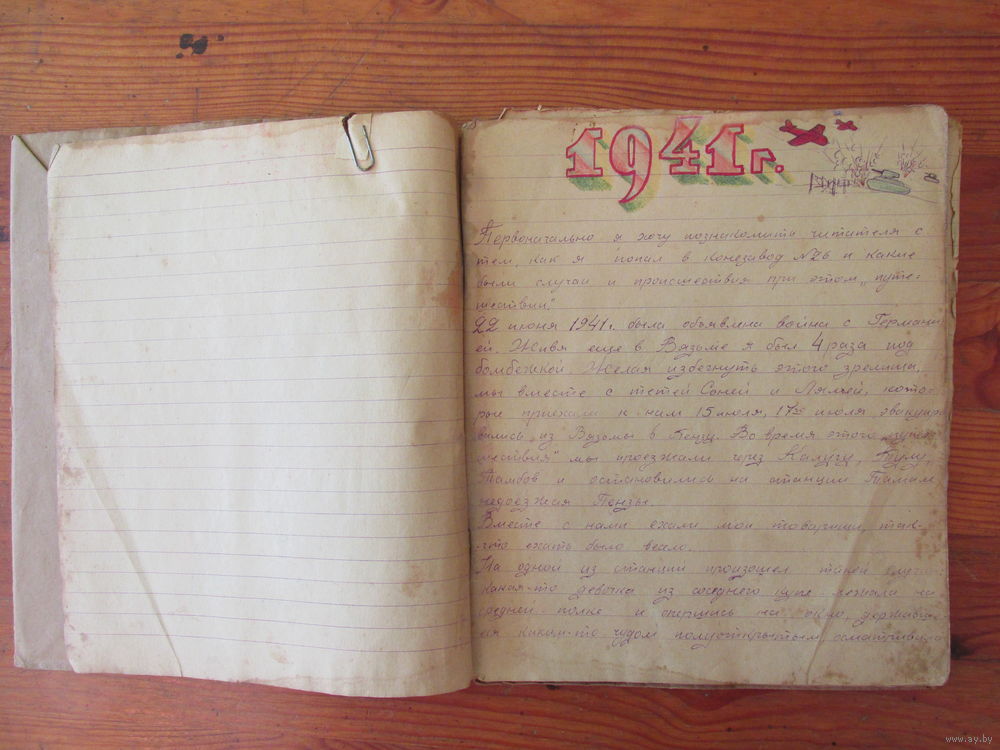 1941 г.
Первоначально я хочу познакомить читателя с
тем, как я попал в конезавод №26 и какие
были случаи и происшествия при этом „путе-
шествии".
22 июня 1941 г. была объявлена война с Германи
ей. Живя еще в Вязьме я был 4 раза под
бомбежкой. Желая избегнуть этого зрелища,
мы вместе с тетей Соней и Лялей, кото-
рые приехали к нам 15 июля, 17го июля эвакуиро
вались из Вязьмы в Пензу. Во время этого „путе
шествия" мы проезжали через Калугу, Тулу,
Тамбов и остановились на станции
недоезжая Пензы.
Вместе с нами ехали мои товарищи, так-
что ехать было весел.
На одной из станций произошел такой случай
какая-то девочка из соседнего купе лежала на
средней полке и опершись на окно, державше
еся каким-то чудом полуоткрытым,
www.ay.by